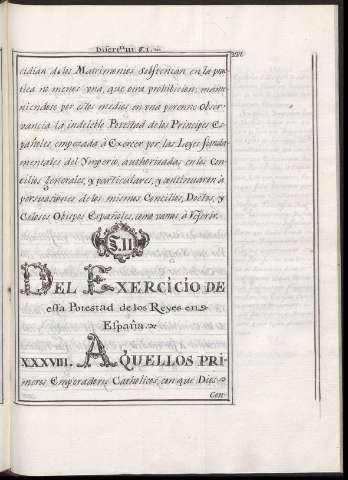 Discrⁿ. III. §. I.
cidian de los Matrimonios observian en la prac
tica no menos una, que otra prohibicion; mante
niendose por estos medios en una perenne Obser
vancia la indeleble Potestad de los Principes Es
pañoles, empezada à Exercer por las Leyes funda
mentales del Ymperio, authorizadas en los Con
cilios generales, y particulares, y continuaron à
persuasiones de los mismos Concilios, Doctos, y
Celosos Obispos Españoles, como vamos à referir.
§. II.
DEL EXERCICIO DE
essa Potestad de los Reyes en
España.
XXXVIII. AQUELLOS PRI-
meros Emperadores Catholicos, con que Dios
Con-